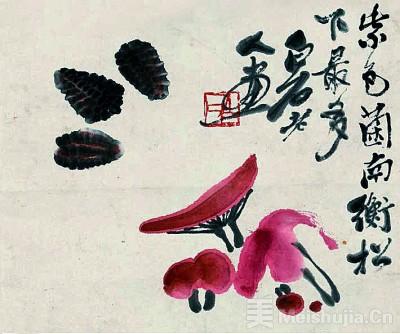 紫色菌南衡松
下最多
白石老
人画
美 Meishujia.Cn